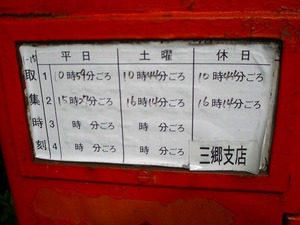 平日 土曜 休日
取 1 10時59分ごろ 10時44分ごろ 10時44分ごろ
集 2 15時27分ごろ 16時14分ごろ 16時14分ごろ
時 3 時 分ごろ 時 分ごろ 時 分ごろ
刻 4 時 分ごろ 時 分ごろ
三郷支店